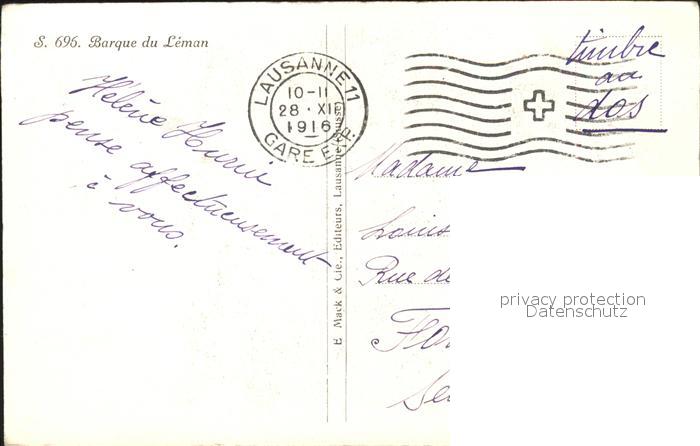 S. 696. Barque du Léman
LAUSANNE 11
10-11
28 · XII
1916
GARE EXP.
timbre
au
dos
Hélène
pense affectueusement
à vous.
E. Mack & Cie., Editeurs, Lausanne (Suisse)
Madame
Louis
Rue de
privacy protection
Datenschutz